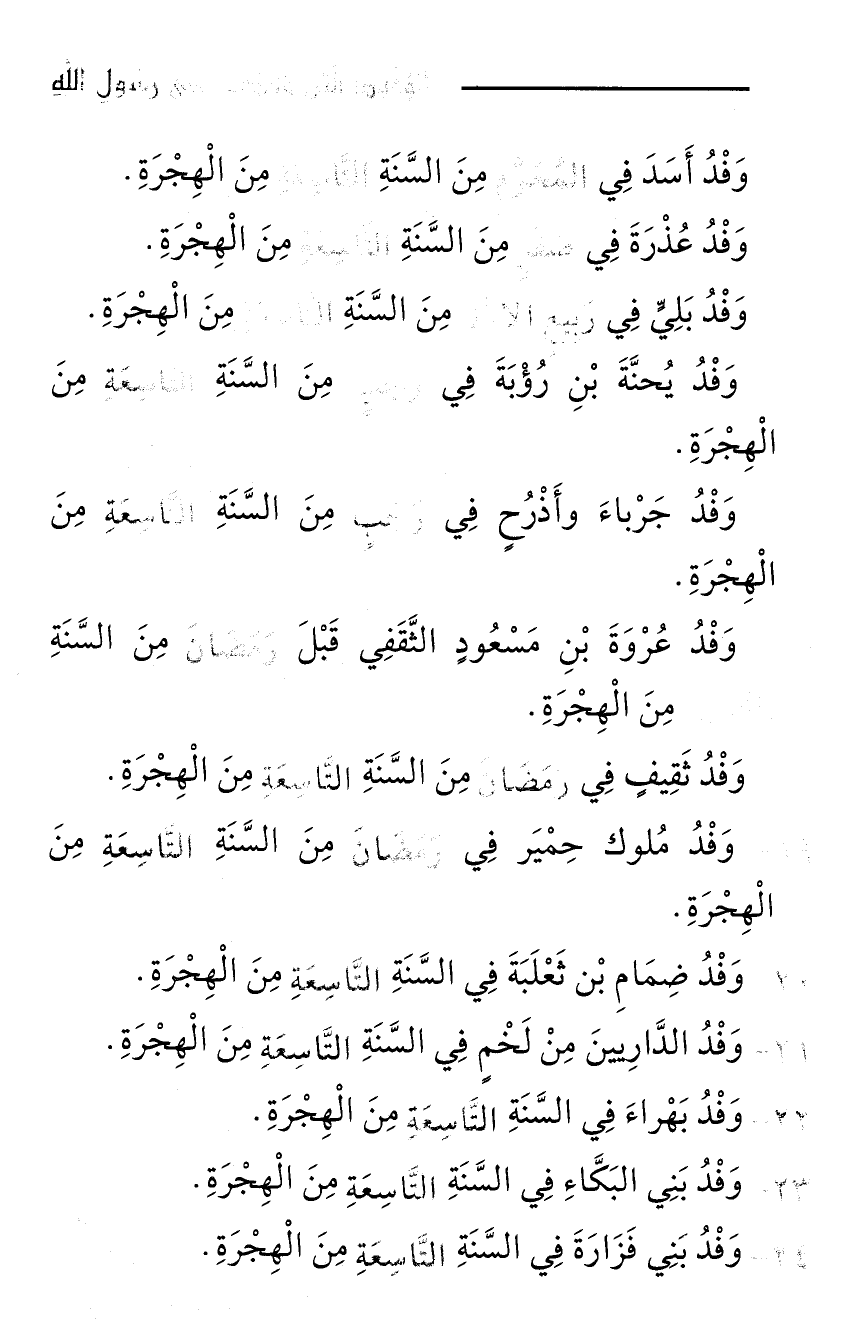 رسول الله
وَفْدُ أَسَدَ فِي المُحَرَّمِ مِنَ السَّنَةِ التَّاسِعَةِ مِنَ الْهِجْرَةِ.
وَفْدُ عُذْرَةَ فِي صَفَرٍ مِنَ السَّنَةِ التَّاسِعَةِ مِنَ الْهِجْرَةِ.
وَفْدُ بَلِيٍّ فِي رَبِيعٍ مِنَ السَّنَةِ التَّاسِعَةِ مِنَ الْهِجْرَةِ.
وَفْدُ يُحنَّةَ بْنِ رُؤْبَةَ فِي مِنَ السَّنَةِ التَّاسِعَةِ مِنَ
الْهِجْرَةِ.
وَفْدُ جَرْباءَ وأَذْرُحٍ فِي رَجَبٍ مِنَ السَّنَةِ التَّاسِعَةِ مِنَ
الْهِجْرَةِ.
وَفْدُ عُرْوَةَ بْنِ مَسْعُودٍ الثَّقَفِي قَبْلَ رَمَضَانَ مِنَ السَّنَةِ
مِنَ الْهِجْرَةِ.
وَفْدُ ثَقِيفٍ فِي رَمَضَانَ مِنَ السَّنَةِ التَّاسِعَةِ مِنَ الْهِجْرَةِ.
وَفْدُ مُلوك حِمْيَر فِي رَمَضَانَ مِنَ السَّنَةِ التَّاسِعَةِ مِنَ
الْهِجْرَةِ.
٢٠ - وَفْدُ ضِمَامِ بْن ثَعْلَبَةَ فِي السَّنَةِ التَّاسِعَةِ مِنَ الْهِجْرَةِ.
٢١ - وَفْدُ الدَّارِيينَ مِنْ لَخْمٍ فِي السَّنَةِ التَّاسِعَةِ مِنَ الْهِجْرَةِ.
٢٢ - وَفْدُ بَهْراءَ فِي السَّنَةِ التَّاسِعَةِ مِنَ الْهِجْرَةِ.
٢٣ - وَفْدُ بَنِي البَكَّاءِ فِي السَّنَةِ التَّاسِعَةِ مِنَ الْهِجْرَةِ.
٢٤ - وَفْدُ بَنِي فَزَارَةَ فِي السَّنَةِ التَّاسِعَةِ مِنَ الْهِجْرَةِ.